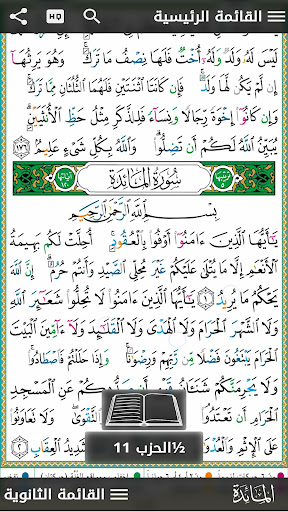 القائمة الرئيسية HQ
لَيْسَ لَهُۥ وَلَدٌ وَلَهُۥٓ أُخْتٌ فَلَهَا نِصْفُ مَا تَرَكَ ۚ وَهُوَ يَرِثُهَآ
إِن لَّمْ يَكُن لَّهَا وَلَدٌ ۚ فَإِن كَانَتَا ٱثْنَتَيْنِ فَلَهُمَا ٱلثُّلُثَانِ مِمَّا تَرَكَ ۚ
وَإِن كَانُوٓا۟ إِخْوَةً رِّجَالًا وَنِسَآءً فَلِلذَّكَرِ مِثْلُ حَظِّ ٱلْأُنثَيَيْنِ ۗ
يُبَيِّنُ ٱللَّهُ لَكُمْ أَن تَضِلُّوا۟ ۗ وَٱللَّهُ بِكُلِّ شَىْءٍ عَلِيمٌۢ ١٧٦
سُورَةُ المَائِدَةِ
بِسْمِ ٱللَّهِ ٱلرَّحْمَٰنِ ٱلرَّحِيمِ
يَٰٓأَيُّهَا ٱلَّذِينَ ءَامَنُوٓا۟ أَوْفُوا۟ بِٱلْعُقُودِ ۚ أُحِلَّتْ لَكُم بَهِيمَةُ
ٱلْأَنْعَٰمِ إِلَّا مَا يُتْلَىٰ عَلَيْكُمْ غَيْرَ مُحِلِّى ٱلصَّيْدِ وَأَنتُمْ حُرُمٌ ۗ إِنَّ ٱللَّهَ
يَحْكُمُ مَا يُرِيدُ ١ يَٰٓأَيُّهَا ٱلَّذِينَ ءَامَنُوا۟ لَا تُحِلُّوا۟ شَعَٰٓئِرَ ٱللَّهِ
وَلَا ٱلشَّهْرَ ٱلْحَرَامَ وَلَا ٱلْهَدْىَ وَلَا ٱلْقَلَٰٓئِدَ وَلَآ ءَآمِّينَ ٱلْبَيْتَ
ٱلْحَرَامَ يَبْتَغُونَ فَضْلًا مِّن رَّبِّهِمْ وَرِضْوَٰنًا ۚ وَإِذَا حَلَلْتُمْ فَٱصْطَادُوا۟ ۚ
وَلَا يَجْرِمَنَّكُمْ شَنَـَٔانُ قَوْمٍ أَن صَدُّوكُمْ عَنِ ٱلْمَسْجِدِ
ٱلْحَرَامِ أَن وَٱلتَّقْوَىٰ ۖ وَلَا تَعَاوَنُوا۟
عَلَى ٱلْإِثْمِ شَدِيدُ ٱلْعِقَابِ ٢
½الحزب 11
القائمة الثانوية المائدة